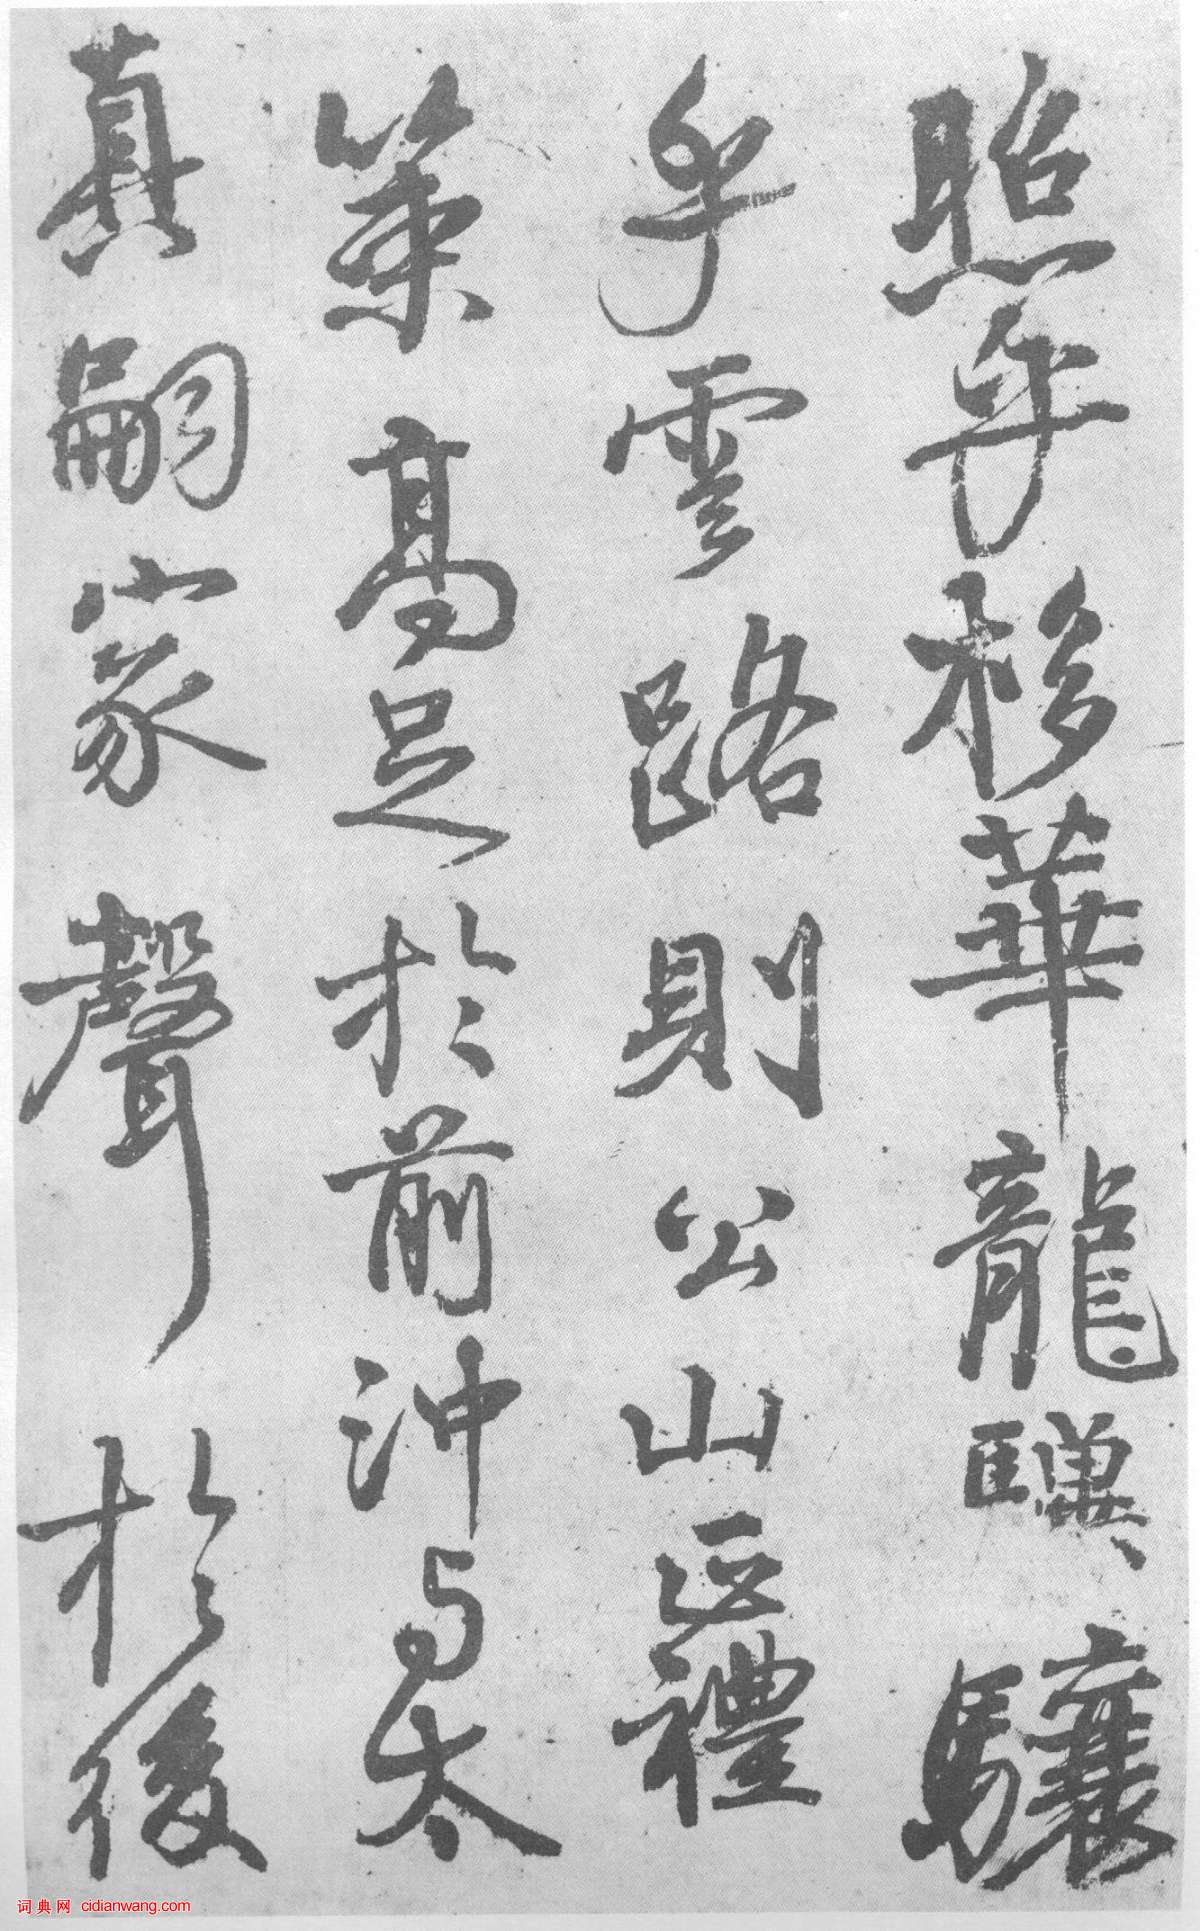 照乎栘華龍驥驤
乎雲路則公山正禮
策高足於前沖与太
真嗣家聲於後
词典网 cidianwang.com